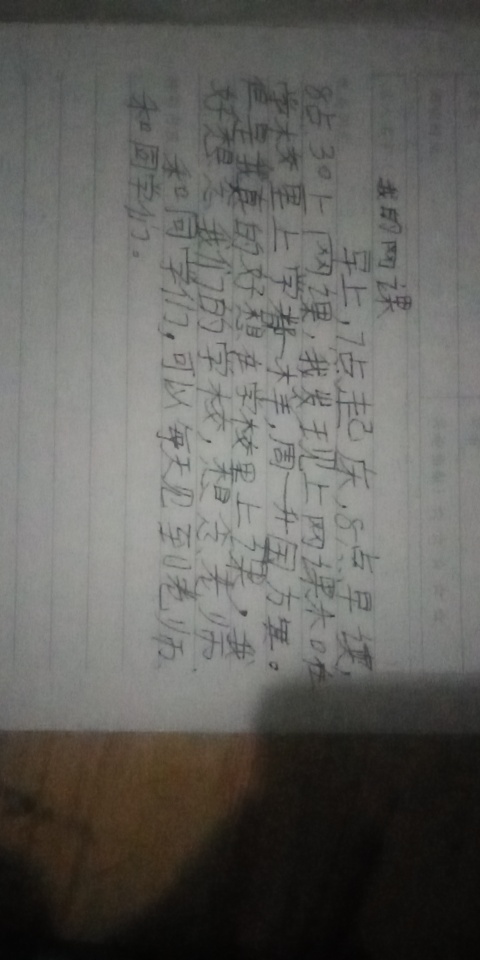 我的网课
早上,7点起床,8点早读,
8点30上网课,我发现上网课和在
学校里上学都一样,周一升国方果。
但是我真的好想在学校里上课,我
好想念我们的学校,想念老师
和同学们,可以每天见到老师
和同学们。